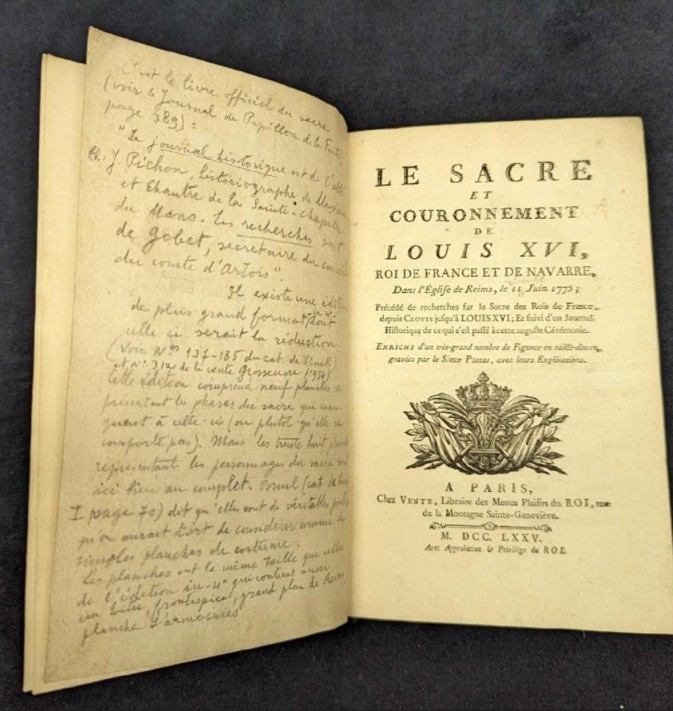 C'est le livre officiel du sacre
(voir le Journal de Papillon de la Ferté,
page 389) :
"Le journal historique est de l'abbé
J. Pichon, historiographe de
et Chantre de la Sainte-Chapelle
du Mans. Les recherches sont
de Gobet, secrétaire du
du comte d'Artois".
Il existe une édition
de plus grand format dont
celle-ci serait la réduction
(Voir Nos 137-185 du cat. de
et No 312 de la vente Grosseuvre 1934)
Cette édition comprend neuf planches
présentant les phases du sacre qui
quent à celle-ci (ou plutôt qu'elle ne
comporte pas). Mais les trente huit
représentant les personnages du sacre sont
ici bien au complet. (cat. de
I page 70) dit qu'elles sont de véritables
qu'on aurait tort de considérer comme de
simples planches de costume.
Les planches ont la même taille que celles
de l'édition in-4° qui contient aussi
titre, frontispice, grand plan de Reims
planche d'armoiries
LE SACRE
ET
COURONNEMENT
DE
LOUIS XVI,
ROI DE FRANCE ET DE NAVARRE,
Dans l'Église de Reims, le 11 Juin 1775;
Précédé de recherches sur le Sacre des Rois de France,
depuis CLOVIS jusqu'à LOUIS XVI; Et suivi d'un Journal
Historique de ce qui s'est passé à cette auguste Cérémonie.
ENRICHI d'un très-grand nombre de Figures en taille-douce,
gravées par le Sieur Patas, avec leurs Explications.
A PARIS,
Chez VENTE, Libraire des Menus Plaisirs du ROI, rue
de la Montagne Sainte-Geneviève.
M. DCC. LXXV.
Avec Approbation & Privilége du ROI.